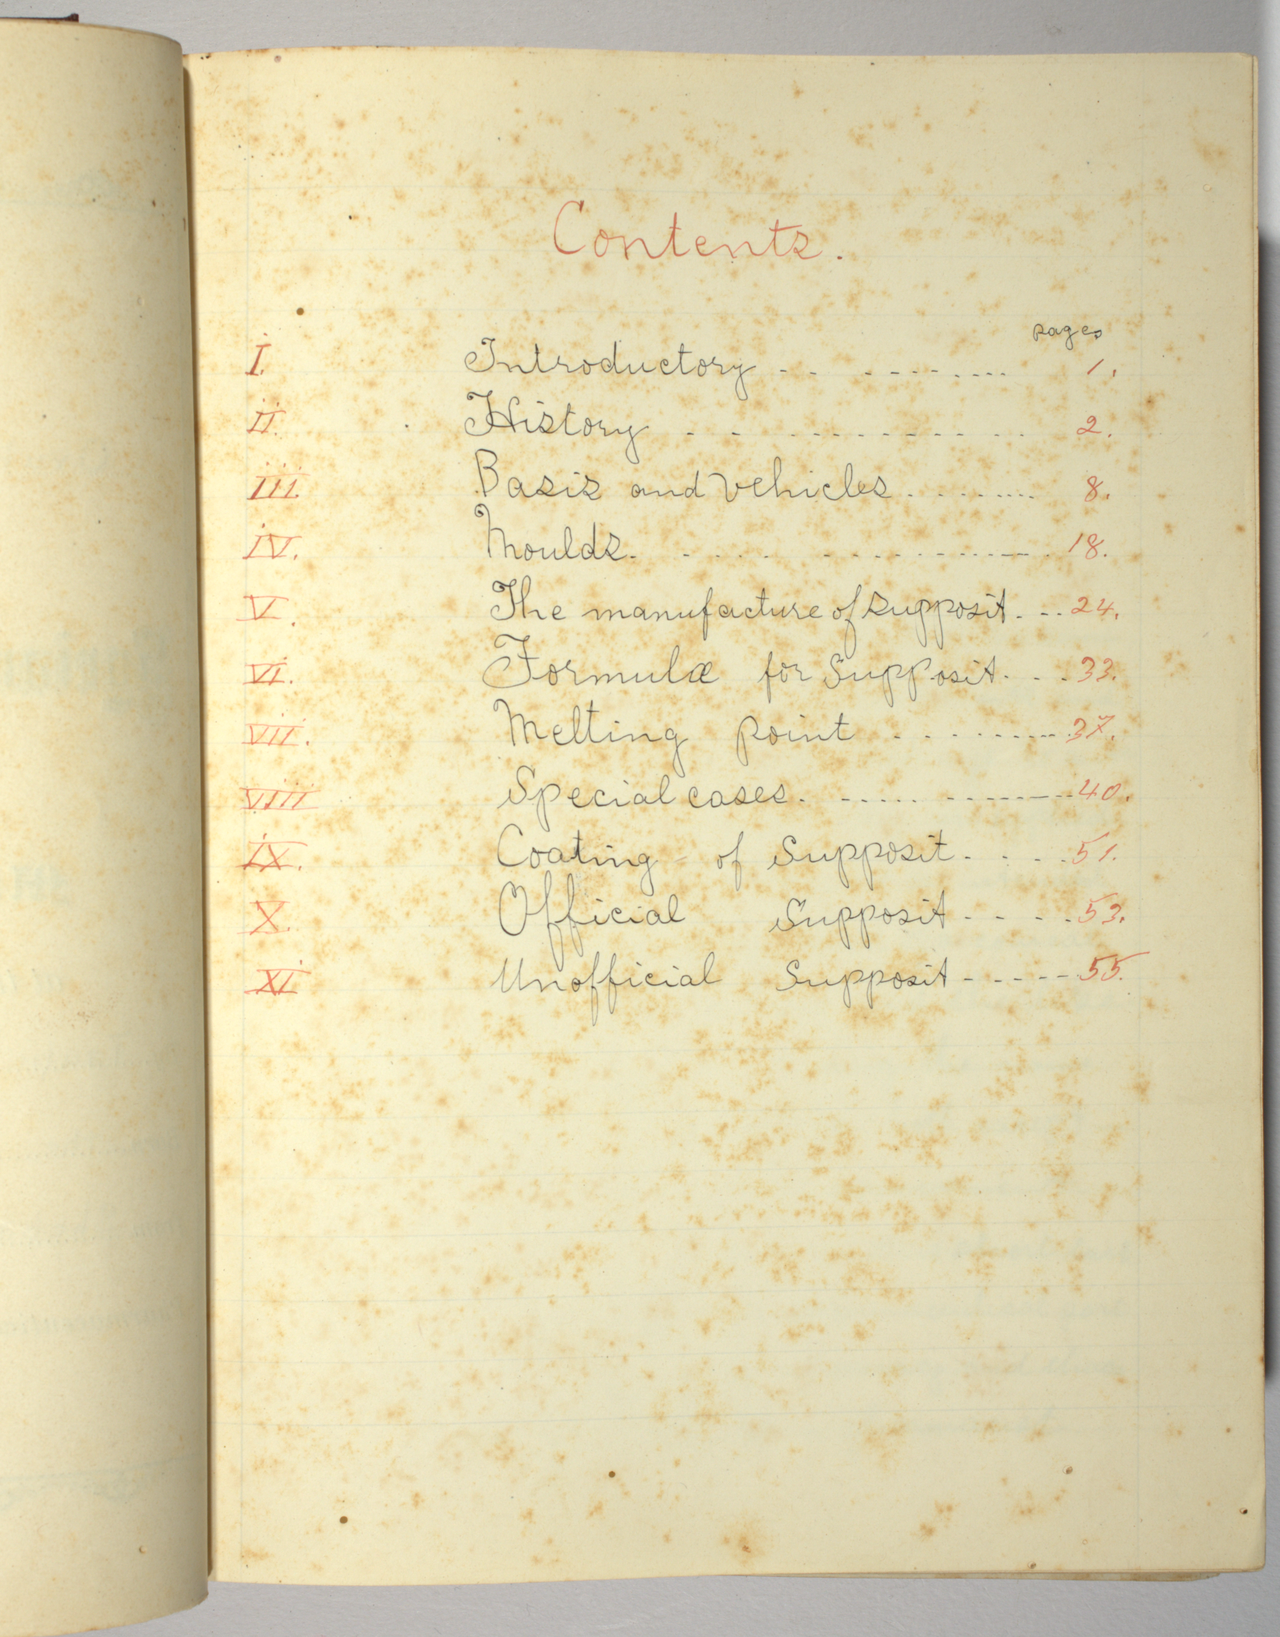 Contents.
pages
I. Introductory - - - - - - - - - - 1.
ii. History - - - - - - - - - - - 2.
iii. Basis and vehicles . . . . . . . . 8.
iv. Moulds. - - - - - - - - - - - - 18.
V. The manufacture of supposit. - - - 24.
Vi. Formulæ for Supposit. - - - 33.
Vii. Melting point - - - - - - - - - 37.
Viii Special cases. - - - - - - - - - - 40.
ix. Coating of Supposit. - - - - 51.
X. Official Supposit - - - - 53.
Xi Unofficial Supposit - - - - - 55.